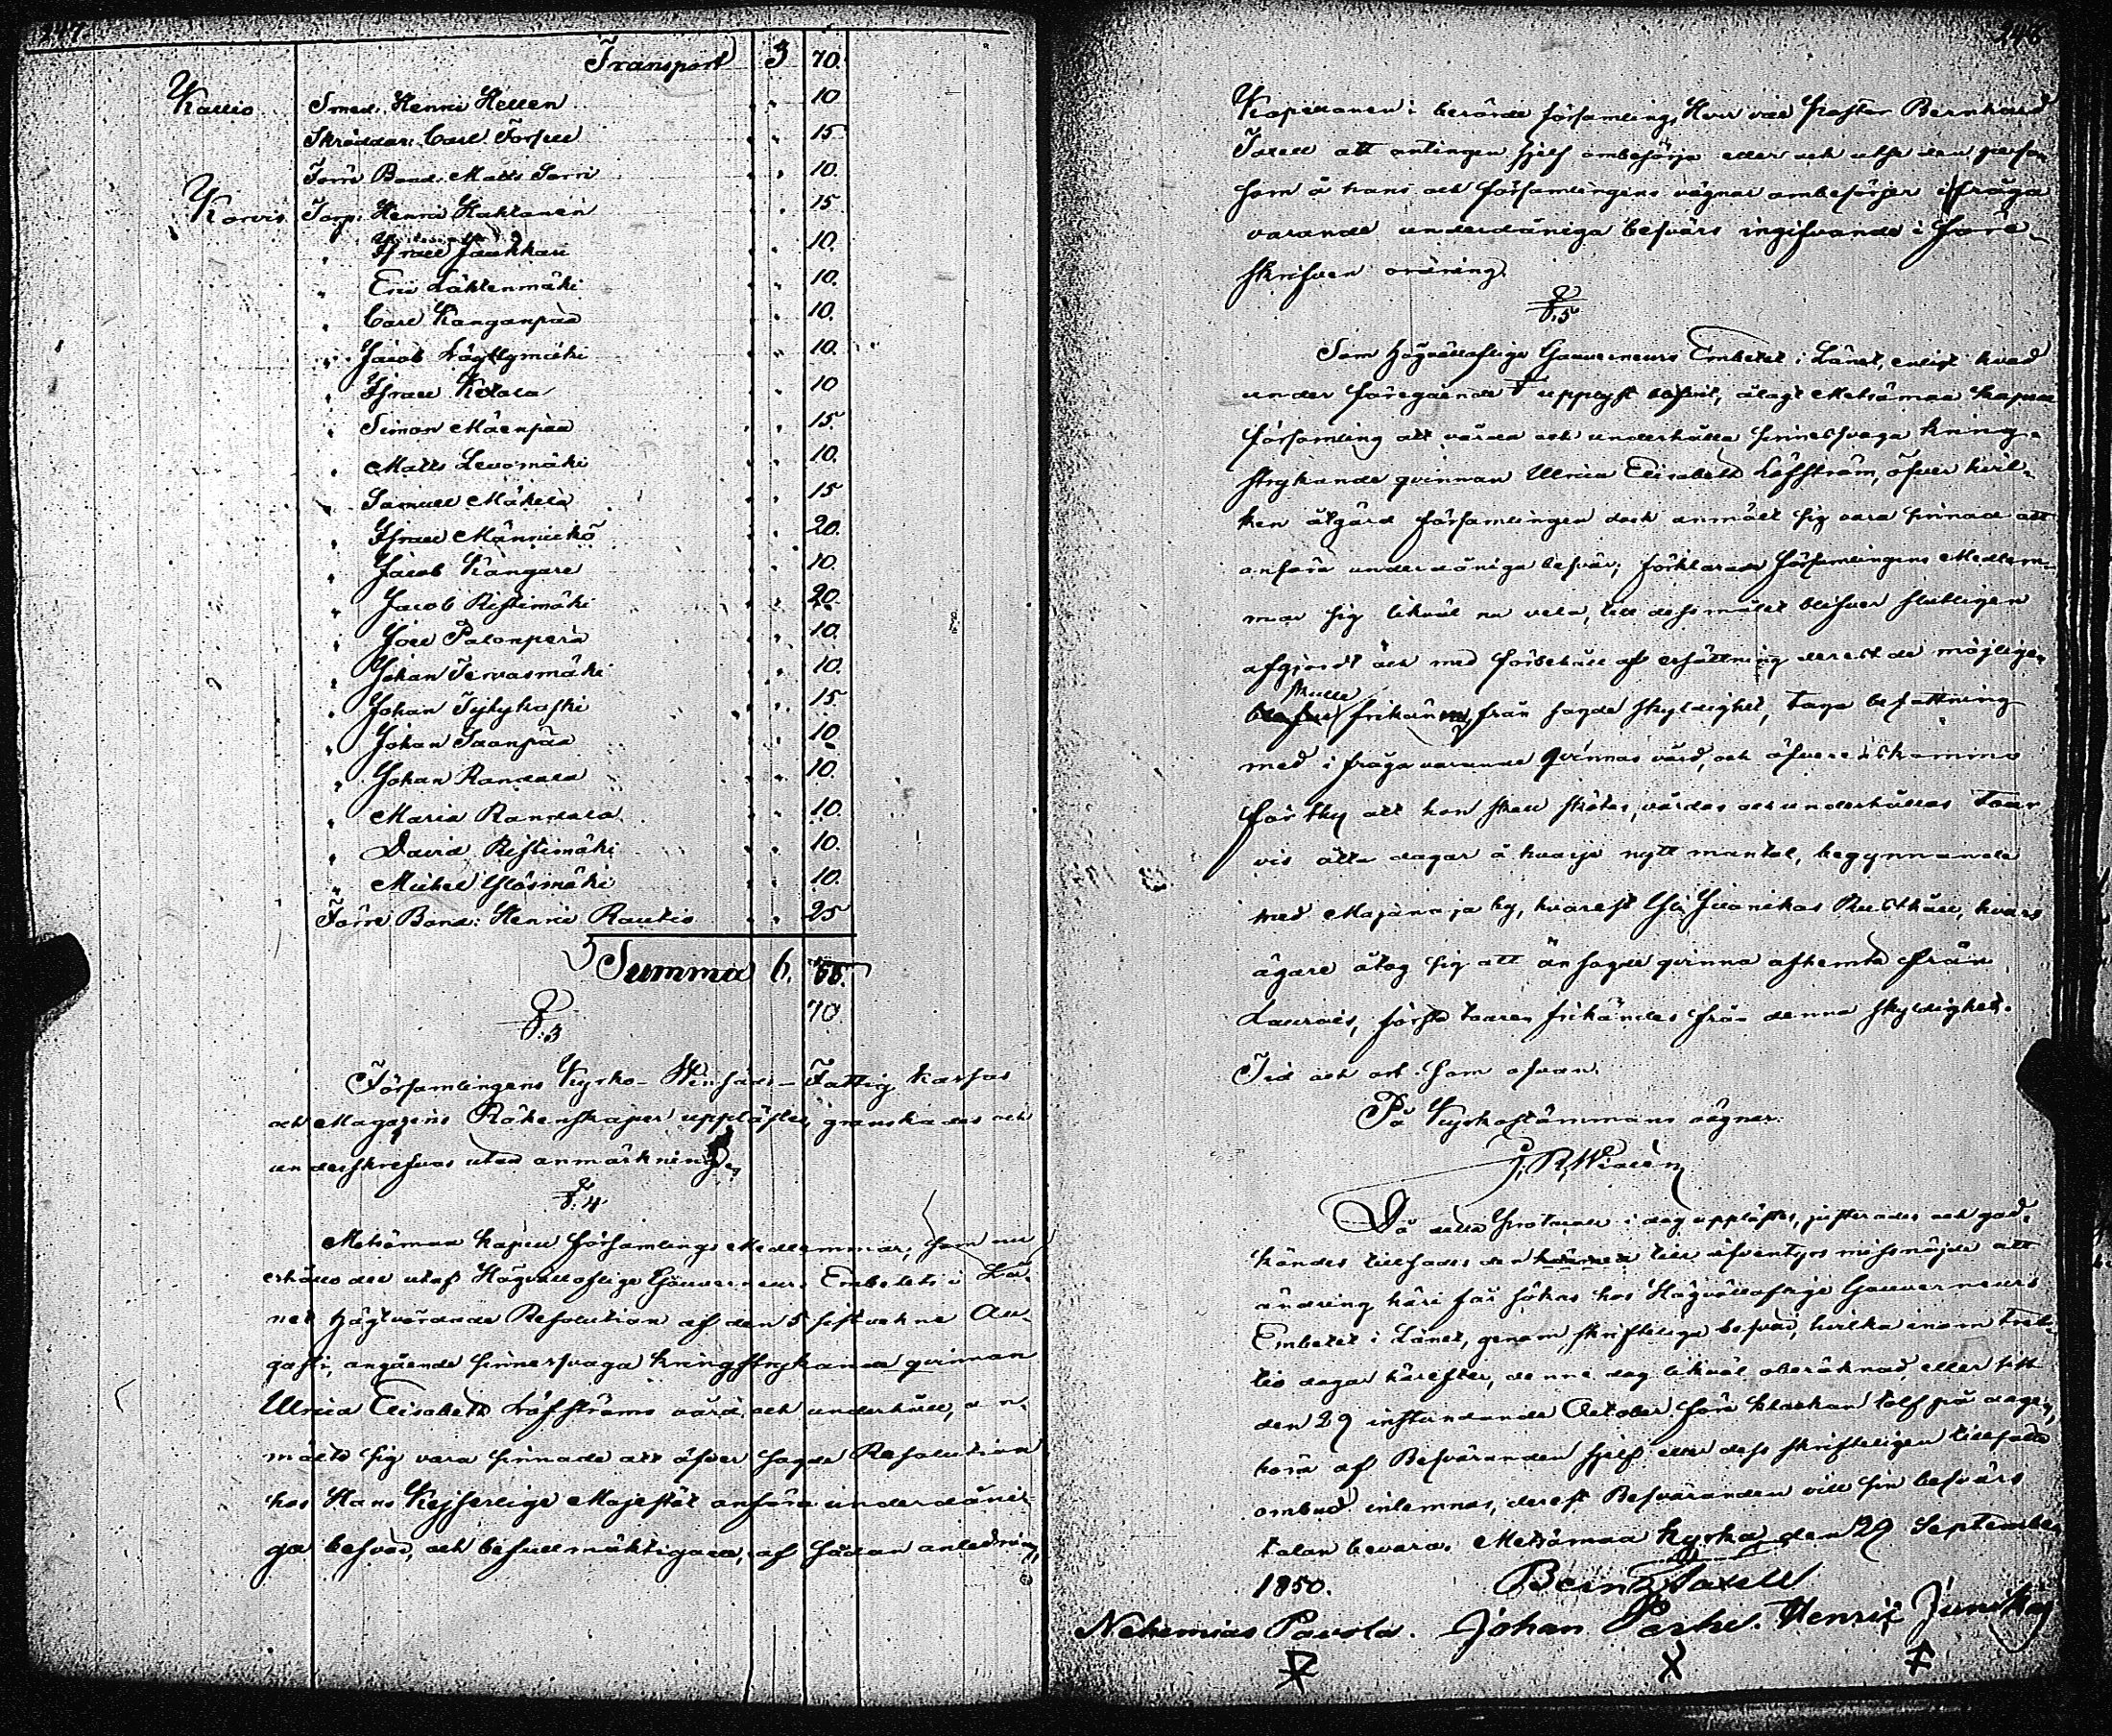 Transport 3 70.
Kallio Smed. Henric Hellen " " 10
Skräddar. Carl Forsell " " 15
Torri Bond. Matts Torri " " 10.
Korvis Torp. Henric Hahtanen " " 15
" Israel Jaakkau " " 10.
" Eric Lähtenmäki " " 10.
" Carl Kanganpää " " 10.
" Jacob Löyttymäki " " 10.
" Israel Ketola " " 10
" Simon Mäenpää " " 15.
" Matts Levomäki " " 10.
" Samuel Mäkelä " " 15
" Israel Männickö " " 20.
" Jacob Kangare " " 10.
" Jacob Ristimäki " " 20.
" Joel Palonperä " " 10.
" Johan Tervasmäki " " 10.
" Johan Tyykykoski " " 15
" Johan Saanpää " " 10
" Johan Randala " " 10.
" Maria Randala " " 10.
" David Ristimäki " " 10.
" Michel Ylösmäki " " 10.
Torre Bond: Henric Rautio " " 25
Summa 6.
70
§.3
Församlingens Kyrko- Winfäds- Fattig kassas
och Magazins Räkenskaper upplästes, granskades och
underskrefvos utan anmärkning.
§.4
Metsämaa kapell församlings Medlemmar, som nu
erhållo del utaf Högvällofliga Gouverneurs Embetets i Lä-
net högtvördade Resolution af den 5 sistvekne Au-
gusti, angående sinnessvaga kringstrykande qvinnan
Ulrica Elisabeth Löfströms vård och underhåll, an-
mälte sig vara sinnade att öfver sagde Resolution
hos Hans Kejserliga Majestät anföra underdåni-
ga besvär, och befullmäktigade, af sådan anledning,
Kapellanen i berörde församling, Herr vice Pastor Bernhard
Taxell att antingen sjelf ombesörja eller ock utse den person
som å hans och församlingens vägnar ombesörjer ifråga
varande underdåniga besvärs ingifvande i före-
skrifven ordning.
§.5
Som Högvällofliga Gouverneurs Embetet i Länet, enligt hvad
under föregående § upplyst blifvit, ålagt Metsämaa kapell
församling att vårda och underhålla sinnessvaga kring-
strykande qvinnan Ulrica Elisabeth Löfström, öfver hvil-
ken åtgärd församlingen dock anmält sig vara sinnad att
anföra underdåniga besvär; förklarade församlingens Medlem-
mar sig likväl nu vela, till dess målet blifver slutligen
afgjordt och med förbehåll af ersättning derest de möjligen
skulle frikännas från sagde skyldighet, taga befattning
med i fråga varande qvinnas vård, och öfverenskommo
för thy att hon skall skötas, vårdas och underhållas tour-
vis åtta dagar å hvarje nytt mantal, begynnande
med Majanoja by, hvarest Yli Junikas Rusthåll, hvars
ägare åtog sig att än sagde qvinna afhemta från
Laurois, första touren frikändes från denna skyldighet.
Tid och ort som ofvan.
På Kyrkostämmans vägnar.
Då detta Protocoll i dag upplästes, justerades och god-
kändes tillsades den till äfventyrs missnöjde att
ändring häri får sökas hos Högvällofliga Gouverneurs
Embetet i Länet, genom skrifteliga besvär, hvilka inom tret-
tio dagar härefter, denna dag likväl oberäknad, eller sist
den 29 instundande October före klockan tolf på dagen,
böra af Besväranden sjelf eller dess skrifteligen tillsatte
ombud inlemnas, derest Besväranden vill sin besvärs
talan bevara. Metsämaa kyrka den 29 September
1850. Bernh Taxell
Nehemias Pavola. Johan Perho. Henrik Junikas